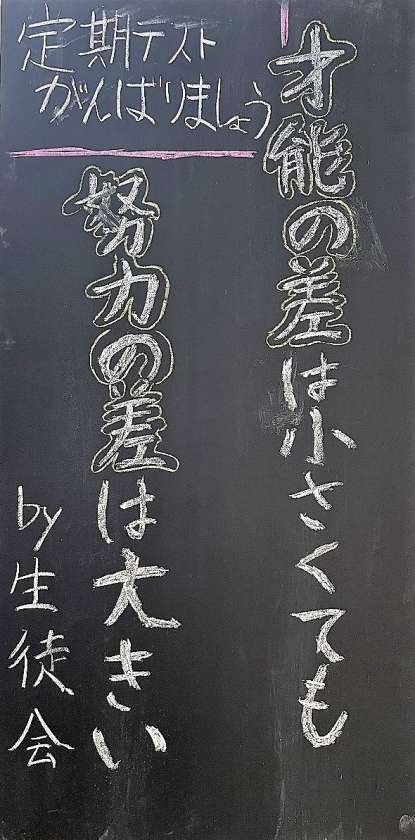 定期テスト
がんばりましょう
才能の差は小さくても
努力の差は大きい
by生徒会